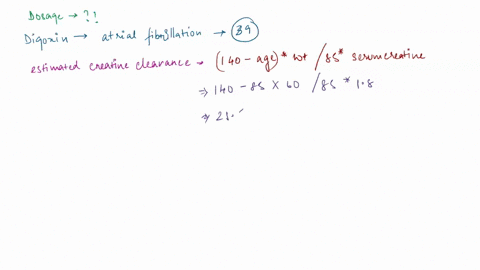 Dosage → ??
Digoxin → atrial fibrillation → 39
estimated creatine clearance → (140 - age) * wt / 85 * serum creatine
⇒ 140 - 85 × 60 / 85 * 1.8
⇒ 21.